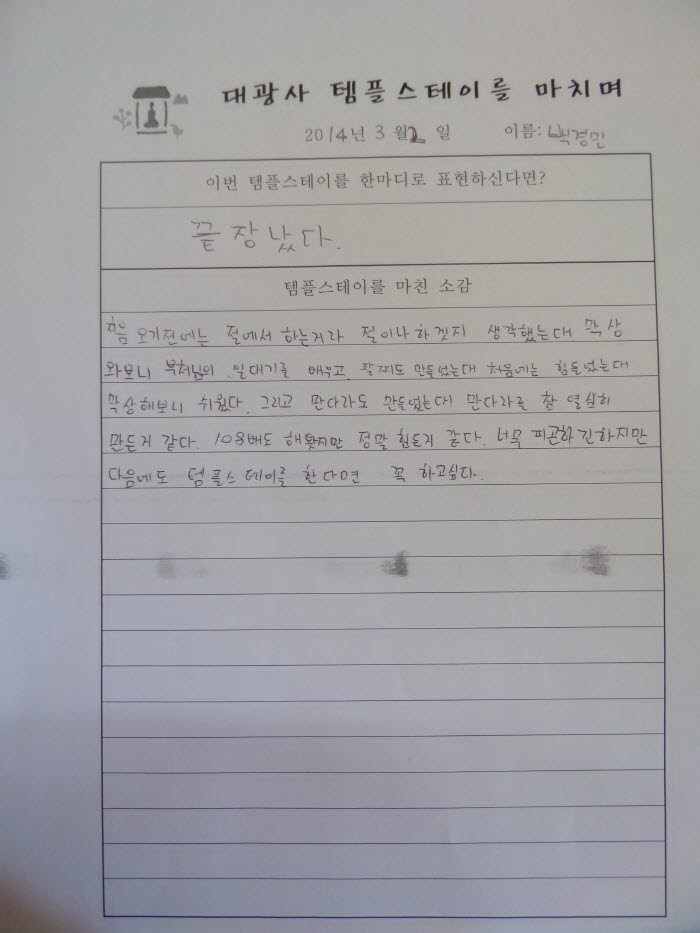 대광사 템플스테이를 마치며
2014년 3월 2일 이름: 백경민
이번 템플스테이를 한마디로 표현하신다면?
끝장났다.
템플스테이를 마친 소감
처음 오기전에는 절에서 하는거라 절이나하겟지 생각했는대 막상
와보니 부처님의 일대기를 배우고 팔찌도 만들었는대 처음에는 힘들었는대
막상해보니 쉬웠다. 그리고 만다라도 만들었는대 만다라를 참 열심히
만든거 같다. 108배도 해봣지만 정말 힘든거 같다. 너무 피곤하긴하지만
다음에도 템플스테이를 한다면 꼭 하고싶다.